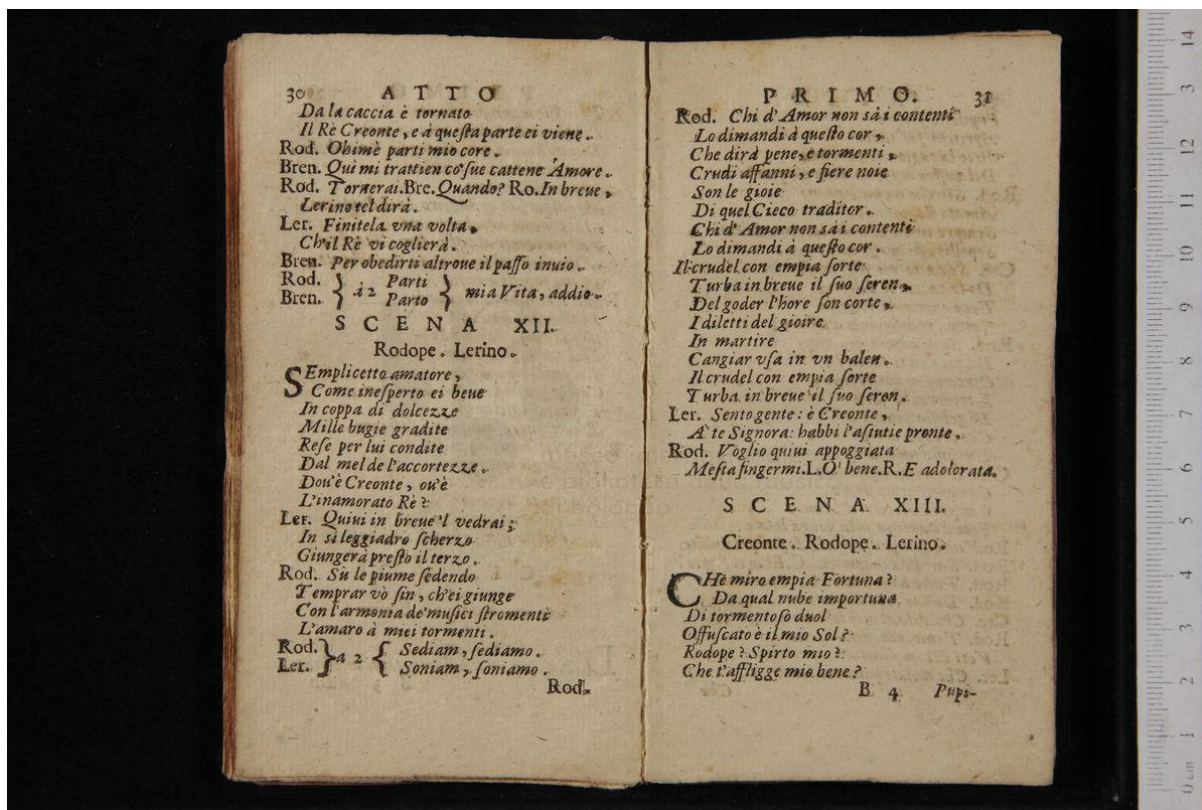 30 ATTO
Da la caccia è tornato
Il Rè Creonte, e à questa parte ei viene.
Rod. Ohimè parti mio core.
Bren. Qui mi trattien co' sue cattene Amore.
Rod. Tornerai. Bre. Quando? Ro. In breue,
Lerino tel dirà.
Ler. Finitela vna volta,
Ch'il Rè vi coglierà.
Bren. Per obedirti altroue il passo inuio.
Rod. } à 2 Parti } mia Vita, addio.
Bren. } Parto }
SCENA XII.
Rodope. Lerino.
SEmplicetto amatore,
Come inesperto ei beue
In coppa di dolcezze
Mille bugie gradite
Rese per lui condite
Dal mel de l'accortezze.
Dou'è Creonte, ou'è
L'inamorato Rè?
Ler. Quiui in breue 'l vedrai;
In sì leggiadro scherzo
Giungerà presto il terzo.
Rod. Sù le piume sedendo
Temprar vò sin, ch'ei giunge
Con l'armonia de' musici stromenti
L'amaro à miei tormenti.
Rod. } a 2 { Sediam, sediamo.
Ler. } { Soniam, soniamo.
Rod.
PRIMO. 31
Rod. Chi d'Amor non sà i contenti
Lo dimandi à questo cor,
Che dirà pene, e tormenti,
Crudi affanni, e fiere noie
Son le gioie
Di quel Cieco traditor.
Chi d'Amor non sà i contenti
Lo dimandi à questo cor.
Il crudel con empia sorte
Turba in breue il suo seren,
Del goder l'hore son corte,
I diletti del gioire
In martire
Cangiar vsa in vn balen.
Il crudel con empia sorte
Turba in breue il suo seren.
Ler. Sento gente: è Creonte,
A' te Signora: habbi l'astutie pronte.
Rod. Voglio quiui appoggiata
Mesta fingermi. L. O' bene. R. E adolorata.
SCENA XIII.
Creonte. Rodope. Lerino.
CHè miro empia Fortuna?
Da qual nube importuna
Di tormentoso duol
Offuscato è il mio Sol?
Rodope? Spirto mio?
Che t'affligge mio bene?
B 4 Pupi-
14
13
12
11
10
9
8
7
6
5
4
3
2
1
0 cm